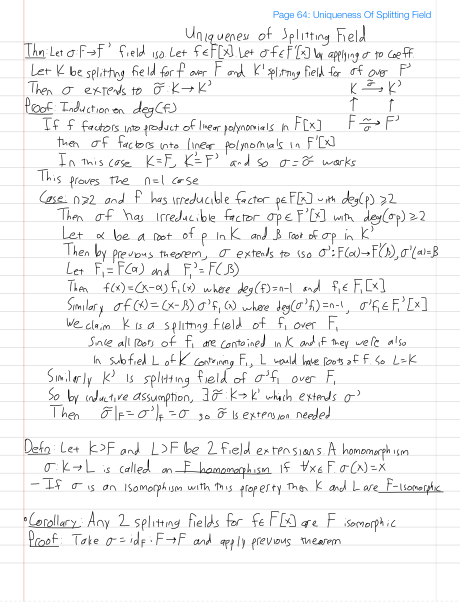 Page 64: Uniqueness Of Splitting Field
Uniqueness of Splitting Field
Thm: Let σ F→F' field iso. Let f∈F[x]. Let σf∈F'[x] by applying σ to coeff
Let K be splitting field for f over F and K' splitting field for σf over F'
Then σ extends to σ̃ K→K'
K σ̃→ K'
↑ ↑
F σ→ F'
Proof: Induction on deg(f)
If f factors into product of linear polynomials in F[x]
then σf factors into linear polynomials in F'[x]
In this case K=F, K'=F' and so σ=σ̃ works
This proves the n=1 case
Case: n≥2 and f has irreducible factor p∈F[x] with deg(p)≥2
Then σf has irreducible factor σp∈F'[x] with deg(σp)≥2
Let α be a root of p in K and β root of σp in K'
Then by previous theorem, σ extends to iso σ': F(α)→F'(β), σ'(α)=β
Let F₁=F(α) and F₁'=F'(β)
Then f(x)=(x-α)f₁(x) where deg(f₁)=n-1 and f₁∈F₁[x]
Similarly σf(x)=(x-β)σ'f₁(x) where deg(σ'f₁)=n-1, σ'f₁∈F₁'[x]
We claim K is a splitting field of f₁ over F₁
Since all roots of f₁ are contained in K and if they were also
in subfield L of K containing F₁, L would have roots of f. So L=K
Similarly K' is splitting field of σ'f₁ over F₁
So by inductive assumption, ∃σ̃: K→K' which extends σ'
Then σ̃|F=σ'|F=σ so σ̃ is extension needed
Defn: Let K>F and L>F be 2 field extensions. A homomorphism
σ: K→L is called an F homomorphism if ∀x∈F σ(x)=x
- If σ is an isomorphism with this property then K and L are F-isomorphic
• Corollary: Any 2 splitting fields for f∈F[x] are F isomorphic
Proof: Take σ=id_F: F→F and apply previous theorem